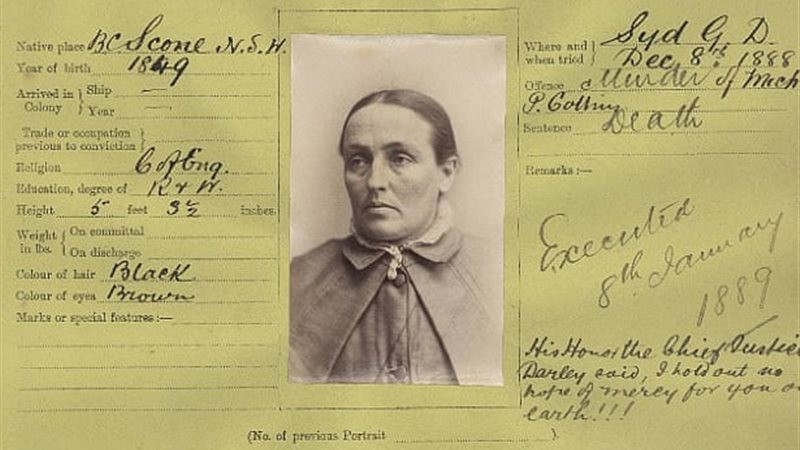 Native place B.C. Scone N.S.W.
Year of birth 1849
Arrived in Colony } Ship —
Year —
Trade or occupation previous to conviction }
Religion C of Eng.
Education, degree of R & W.
Height 5 feet 3½ inches.
Weight in lbs. { On committal
On discharge
Colour of hair Black
Colour of eyes Brown
Marks or special features:—
(No. of previous Portrait )
Where and when tried } Syd G. D.
Dec 8th 1888
Offence Murder of Mich
P. Collins
Sentence Death
Remarks:—
Executed
8th January
1889
His Honor the Chief Justice
Darley said, I hold out no
hope of mercy for you on
earth!!!